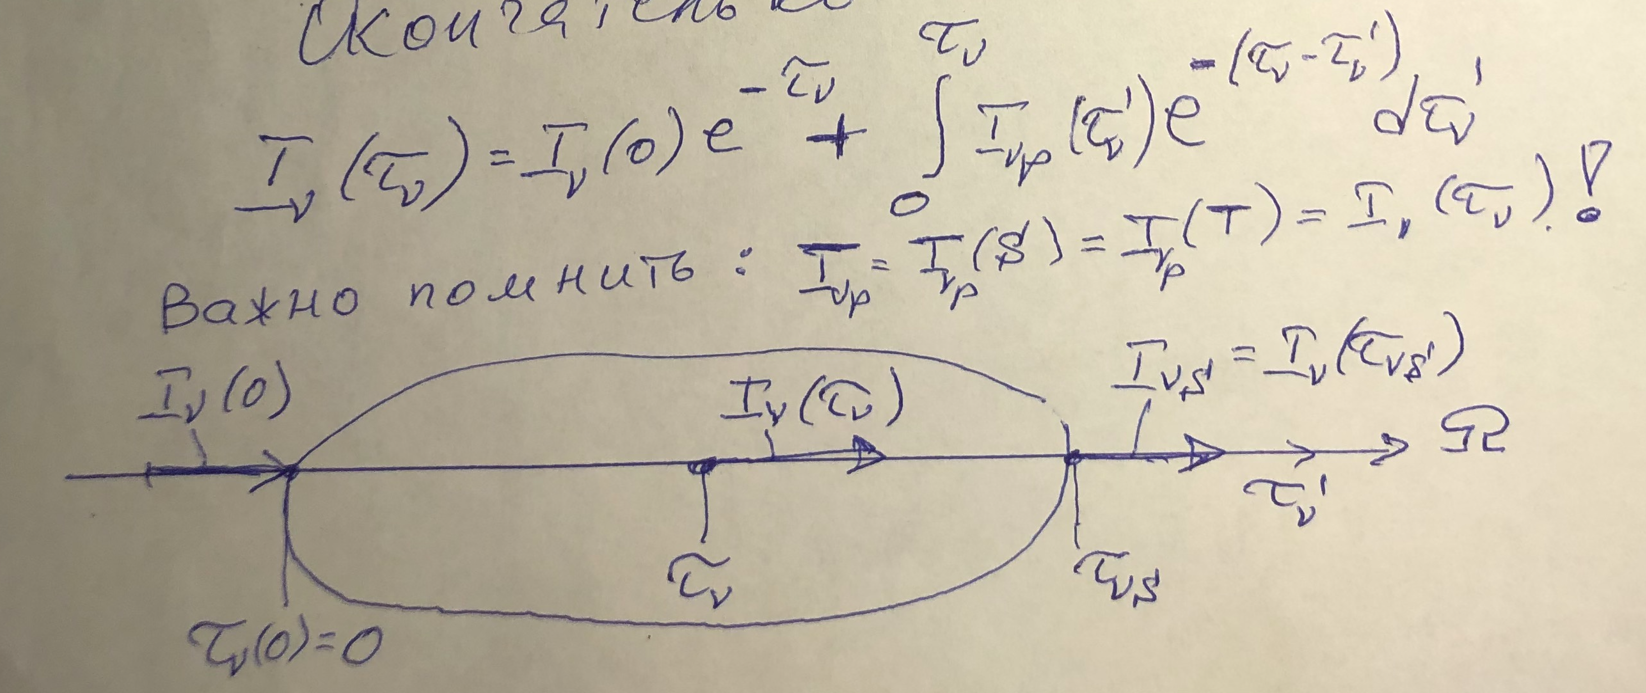 I_ν(τ_ν) = I_ν(0) e^{-τ_ν} + ∫_0^{τ_ν} I_{νp}(τ_ν') e^{-(τ_ν - τ_ν')} dτ_ν'
Важно помнить : I_{νp} = I_{νp}(S) = I_{νp}(T) = I_ν(τ_ν) !
I_ν(0)
I_ν(τ_ν)
I_{νS} = I_ν(τ_{νS})
Ω
τ_ν'
τ_ν
τ_{νS}
τ_ν(0)=0